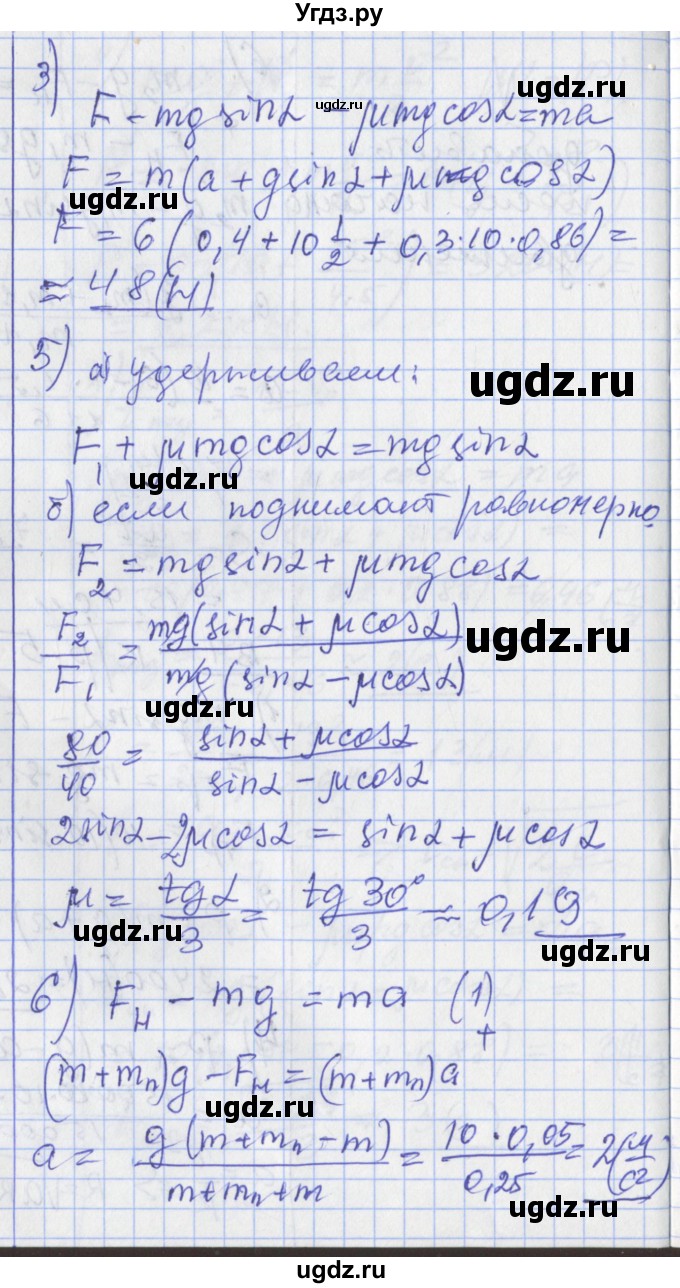 Угдз.ру
3)
F - mg sinα - μmg cosα = ma
F = m(a + g sinα + μg cosα)
F = 6(0,4 + 10 1/2 + 0,3·10·0,86) =
≈ 48(Н)
ugdz.ru
5) а) удерживаем:
ugdz.ru
F₁ + μmg cosα = mg sinα
ugdz.ru
б) если поднимают равномерно
ugdz.ru
F₂ = mg sinα + μmg cosα
ugdz.ru
F₂/F₁ = mg(sinα + μcosα)/mg(sinα - μcosα)
ugdz.ru
ugdz.ru
80/40 = sinα + μcosα/sinα - μcosα
ugdz.ru
2sinα - 2μcosα = sinα + μcosα
ugdz.ru
μ = tgα/3 = tg 30°/3 ≈ 0,19
ugdz.ru
ugdz.ru
6) Fн - mg = ma (1)
+
ugdz.ru
(m + mп)g - Fн = (m + mп)a
ugdz.ru
a = g(m + mп - m)/m + mп + m = 10·0,05/0,25 = 2(м/с²)
ugdz.ru
ugdz.ru
ugdz.ru